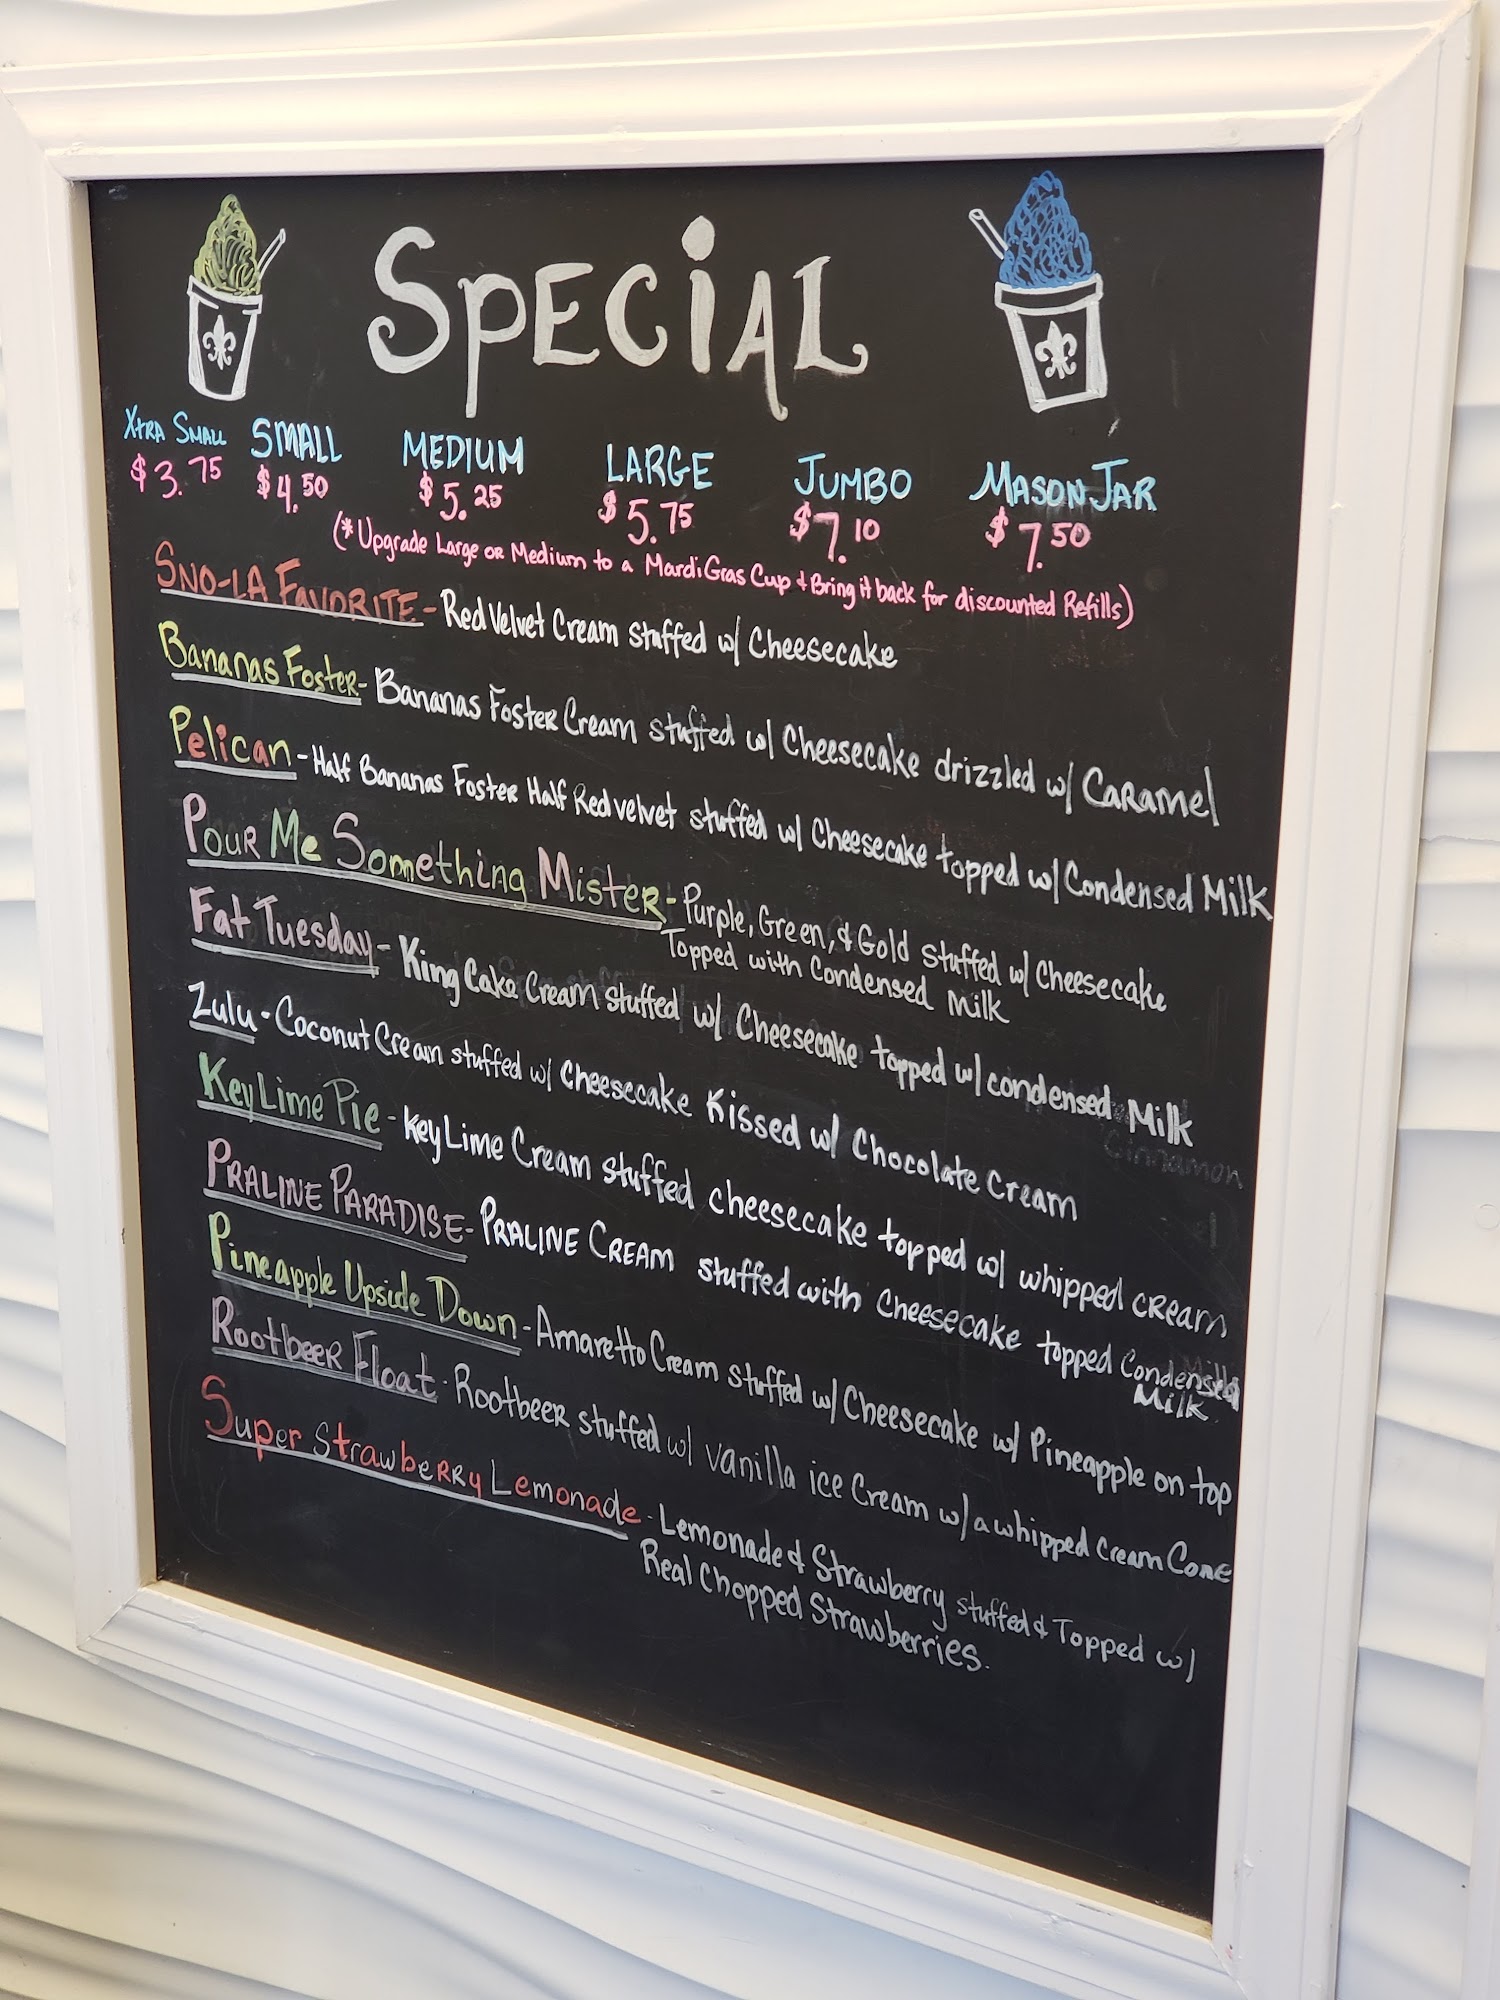 Special
Xtra Small SMALL MEDIUM LARGE JUMBO MASON JAR
$3.75 $4.50 $5.25 $5.75 $7.10 $7.50
(*Upgrade Large or Medium to a Mardi Gras Cup & Bring it back for discounted Refills)
SNO-LA FAVORITE - Red Velvet Cream stuffed w/ Cheesecake
Bananas Foster - Bananas Foster Cream stuffed w/ Cheesecake drizzled w/ Caramel
Pelican - Half Bananas Foster Half Red velvet stuffed w/ Cheesecake topped w/ Condensed Milk
Pour Me Something Mister - Purple, Green, & Gold stuffed w/ Cheesecake
Topped with Condensed Milk
Fat Tuesday - King Cake Cream stuffed w/ Cheesecake topped w/ condensed Milk
Cinnamon
Zulu - Coconut Cream stuffed w/ Cheesecake Kissed w/ Chocolate Cream
Key Lime Pie - Key Lime Cream stuffed cheesecake topped w/ whipped cream
PRALINE PARADISE - PRALINE CREAM stuffed with Cheesecake topped Condensed
Milk
Pineapple Upside Down - Amaretto Cream stuffed w/ Cheesecake w/ Pineapple on top
Rootbeer Float - Rootbeer stuffed w/ vanilla ice Cream w/ a whipped cream Cone
Super Strawberry Lemonade - Lemonade & Strawberry stuffed & Topped w/
Real Chopped Strawberries.